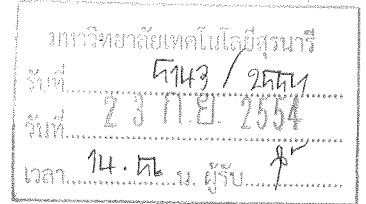 มหาวิทยาลัยเทคโนโลยีสุรนารี
รับที่ 5143 / 2554
วันที่ 23 ก.ย. 2554
เวลา 14. น. ผู้รับ